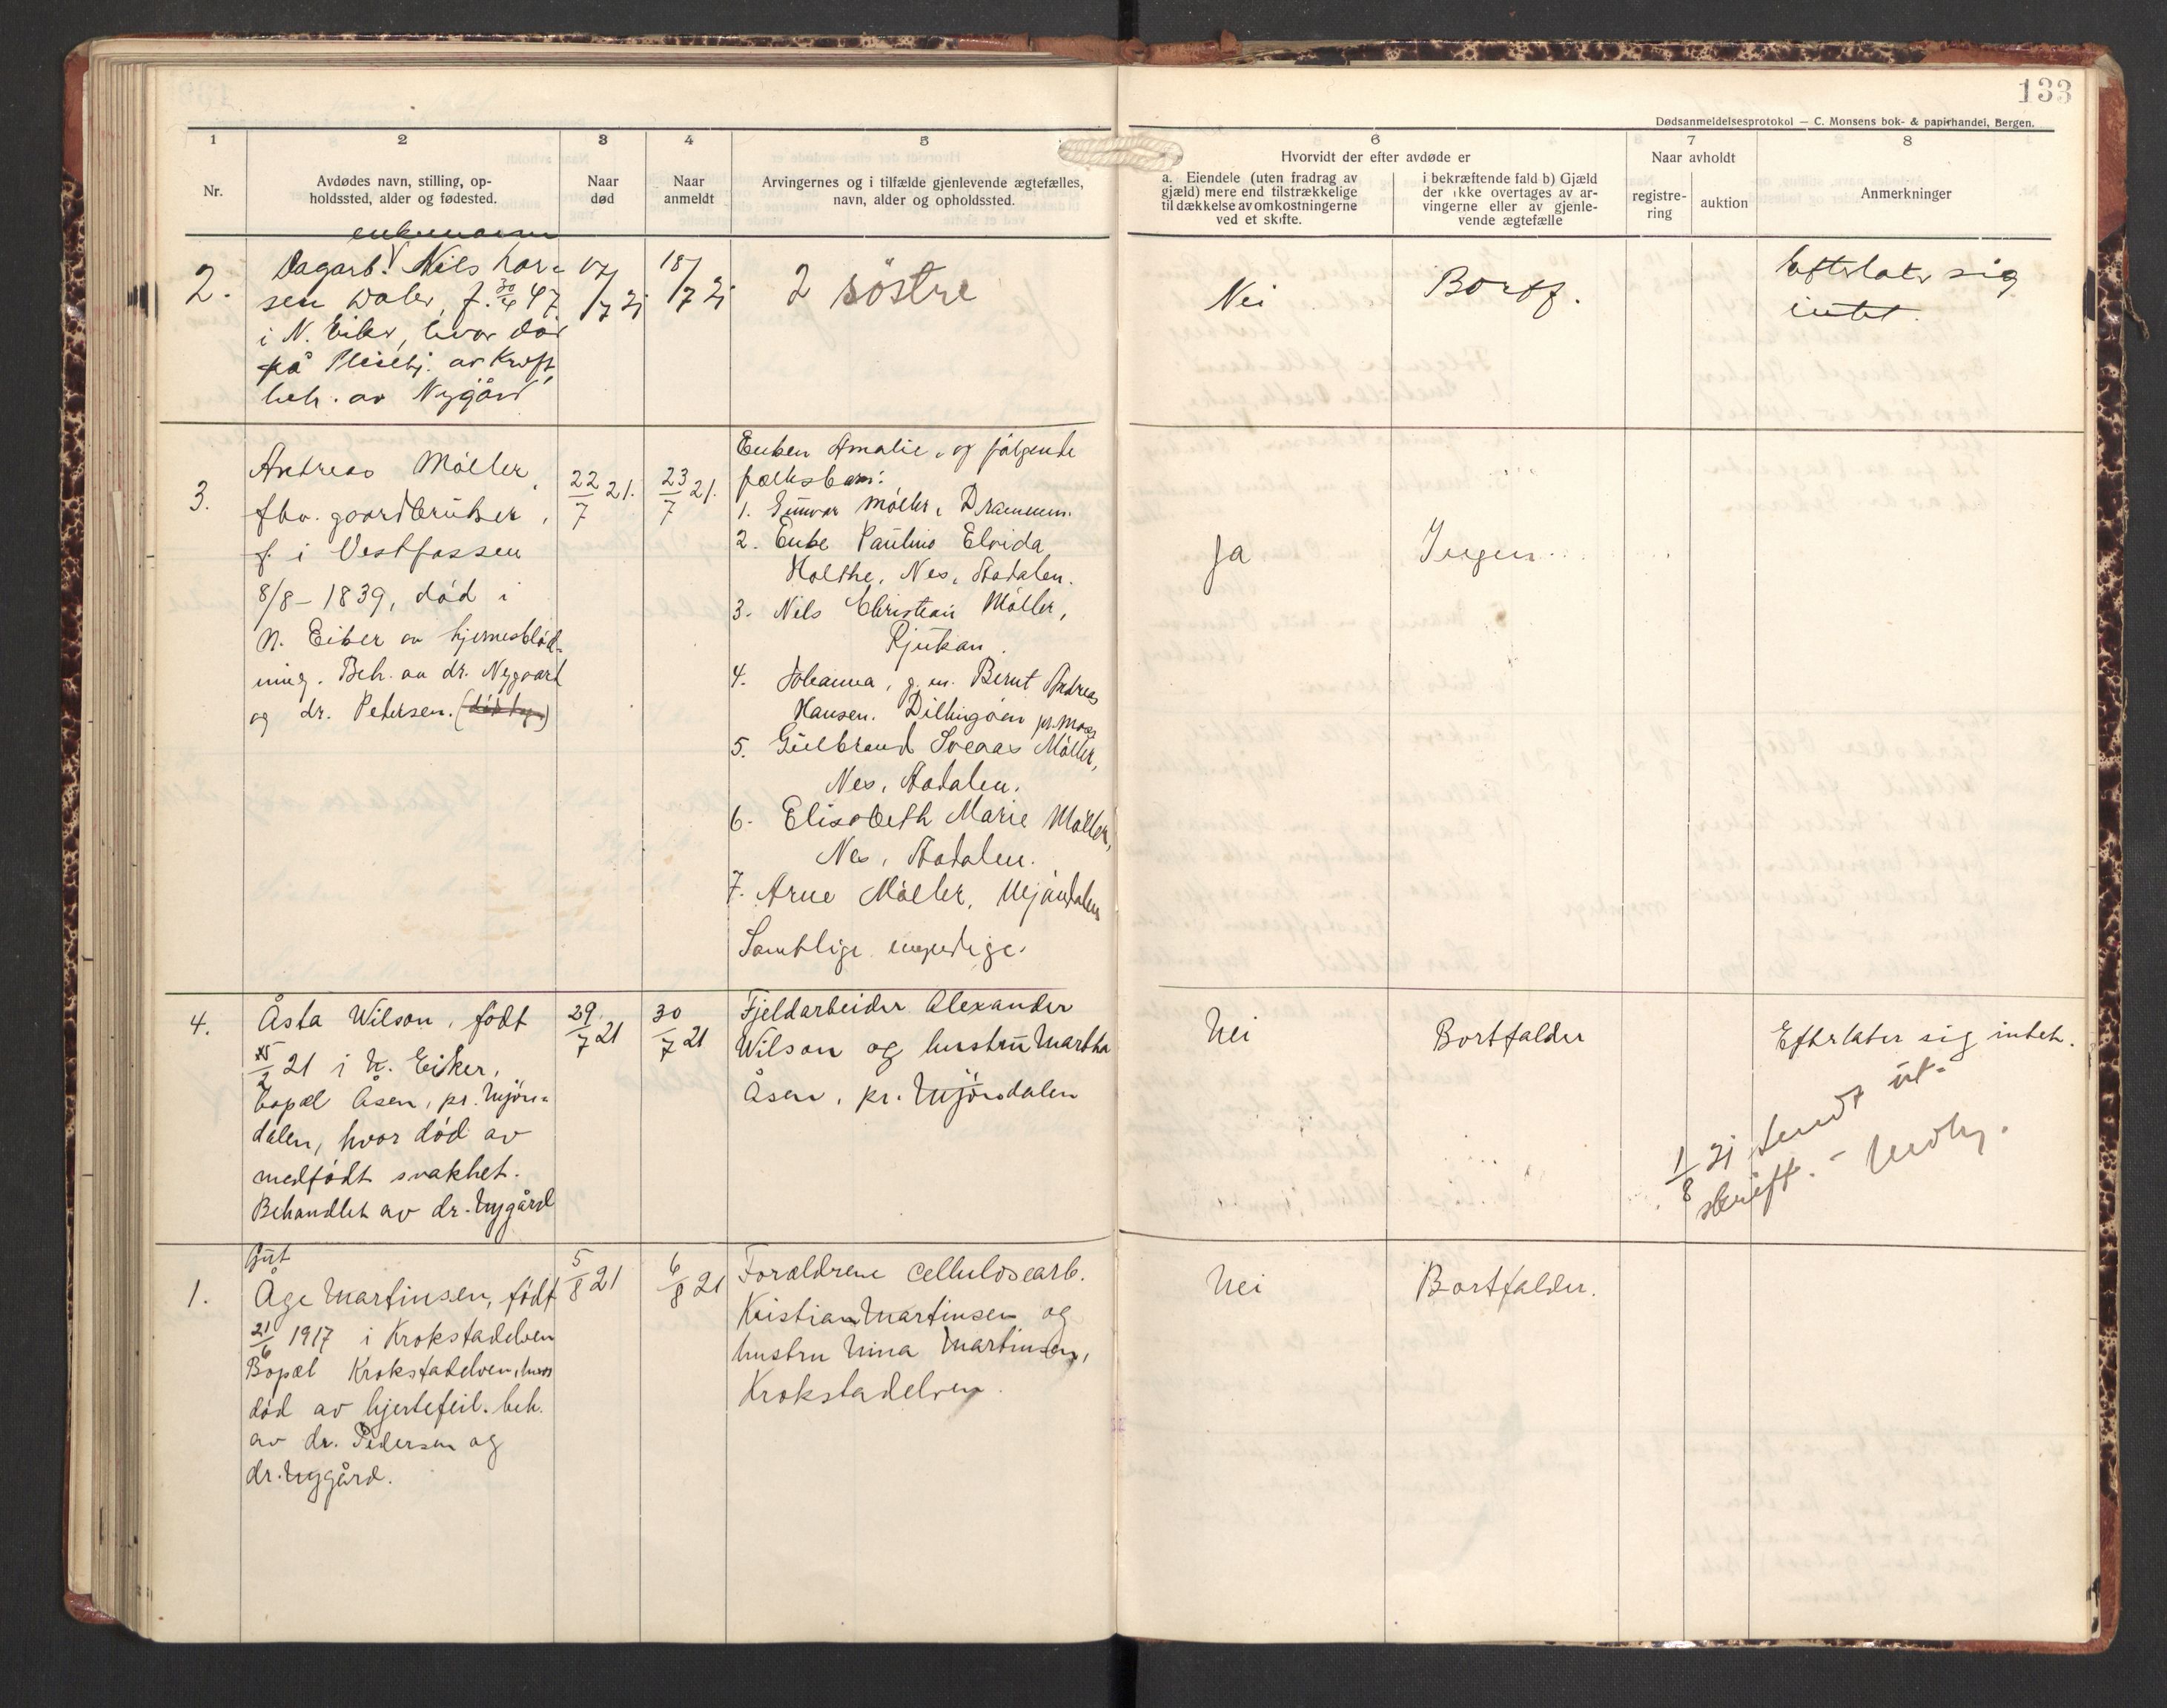 133
Dødsanmeldelsesprotokol — C. Monsens bok- & papirhandel, Bergen.
1
2
3
4
5
6
7
8
Nr.
Avdødes navn, stilling, op-
holdssted, alder og fødested.
Naar
død
Naar
anmeldt
Arvingernes og i tilfælde gjenlevende ægtefælles,
navn, alder og opholdssted.
Hvorvidt der efter avdøde er
a. Eiendele (uten fradrag av
gjæld) mere end tilstrækkelige
til dækkelse av omkostningerne
ved et skifte.
i bekræftende fald b) Gjæld
der ikke overtages av ar-
vingerne eller av gjenle-
vende ægtefælle
Naar avholdt
registre-
ring
auktion
Anmerkninger
2.
enkemann
Dagarb. Nils Lar-
sen Daler, f. 30/4 47
i N. Eiker, hvor død
på Pleiehj. av Kreft,
beh. av Nygård
17/7 21
18/7 21
2 søstre
Nei
Bortf.
Efterlater sig
intet.
3.
Andreas Møller,
fhv. gaardbruker,
f. i Vestfossen
8/8 - 1839, død i
N. Eiker av hjerneblød-
ning. Beh. av dr. Nygaard
og dr. Petersen.
22/7 21.
23/7 21.
Enken Amalie, og følgende
fælksbarn:
1. Gunvor Møller, Drammen.
2. Enke Pauline Elvida
Holthe, Nes, Aadalen.
3. Nils Christian Møller,
Rjukan.
4. Johanna, g. m. Bernt Andreas
Hansen. Dillingøen pr. Moss
5. Gulbrand Sveaas Møller,
Nes, Aadalen.
6. Elisabeth Marie Møller,
Nes, Aadalen.
7. Arne Møller, Mjøndalen
Samtlige myndige.
Ja
Ingen.
4.
Åsta Wilson, født
15/2 21 i N. Eiker,
bopæl Åsen, pr. Mjøn-
dalen, hvor død av
medfødt svakhet.
Behandlet av dr. Nygård
29/7 21
30/7 21
Fjeldarbeider Alexander
Wilson og hustru Martha
Åsen, pr. Mjøndalen
Nei
Bortfalder
Efterlater sig intet.
1/8 21 sendt ut-
skrift. -
1.
Gut
Åge Martinsen, født
21/6 1917 i Krokstadelven
Bopæl Krokstadelven, hvor
død av hjertefeil. beh.
av dr. Pedersen og
dr. Nygård.
5/8 21
6/8 21
Forældrene Cellulosearb.
Kristian Martinsen og
hustru Nina Martinsen,
Krokstadelven.
Nei
Bortfalder.